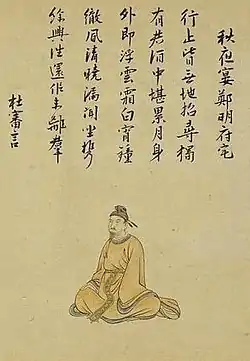 秋夜宴鄭明府宅
行止皆無地招尋獨
有君酒中堪累月身
外即浮雲霜白宵鐘
徹風清曉漏聞坐攜
餘興往還似未離群
杜審言